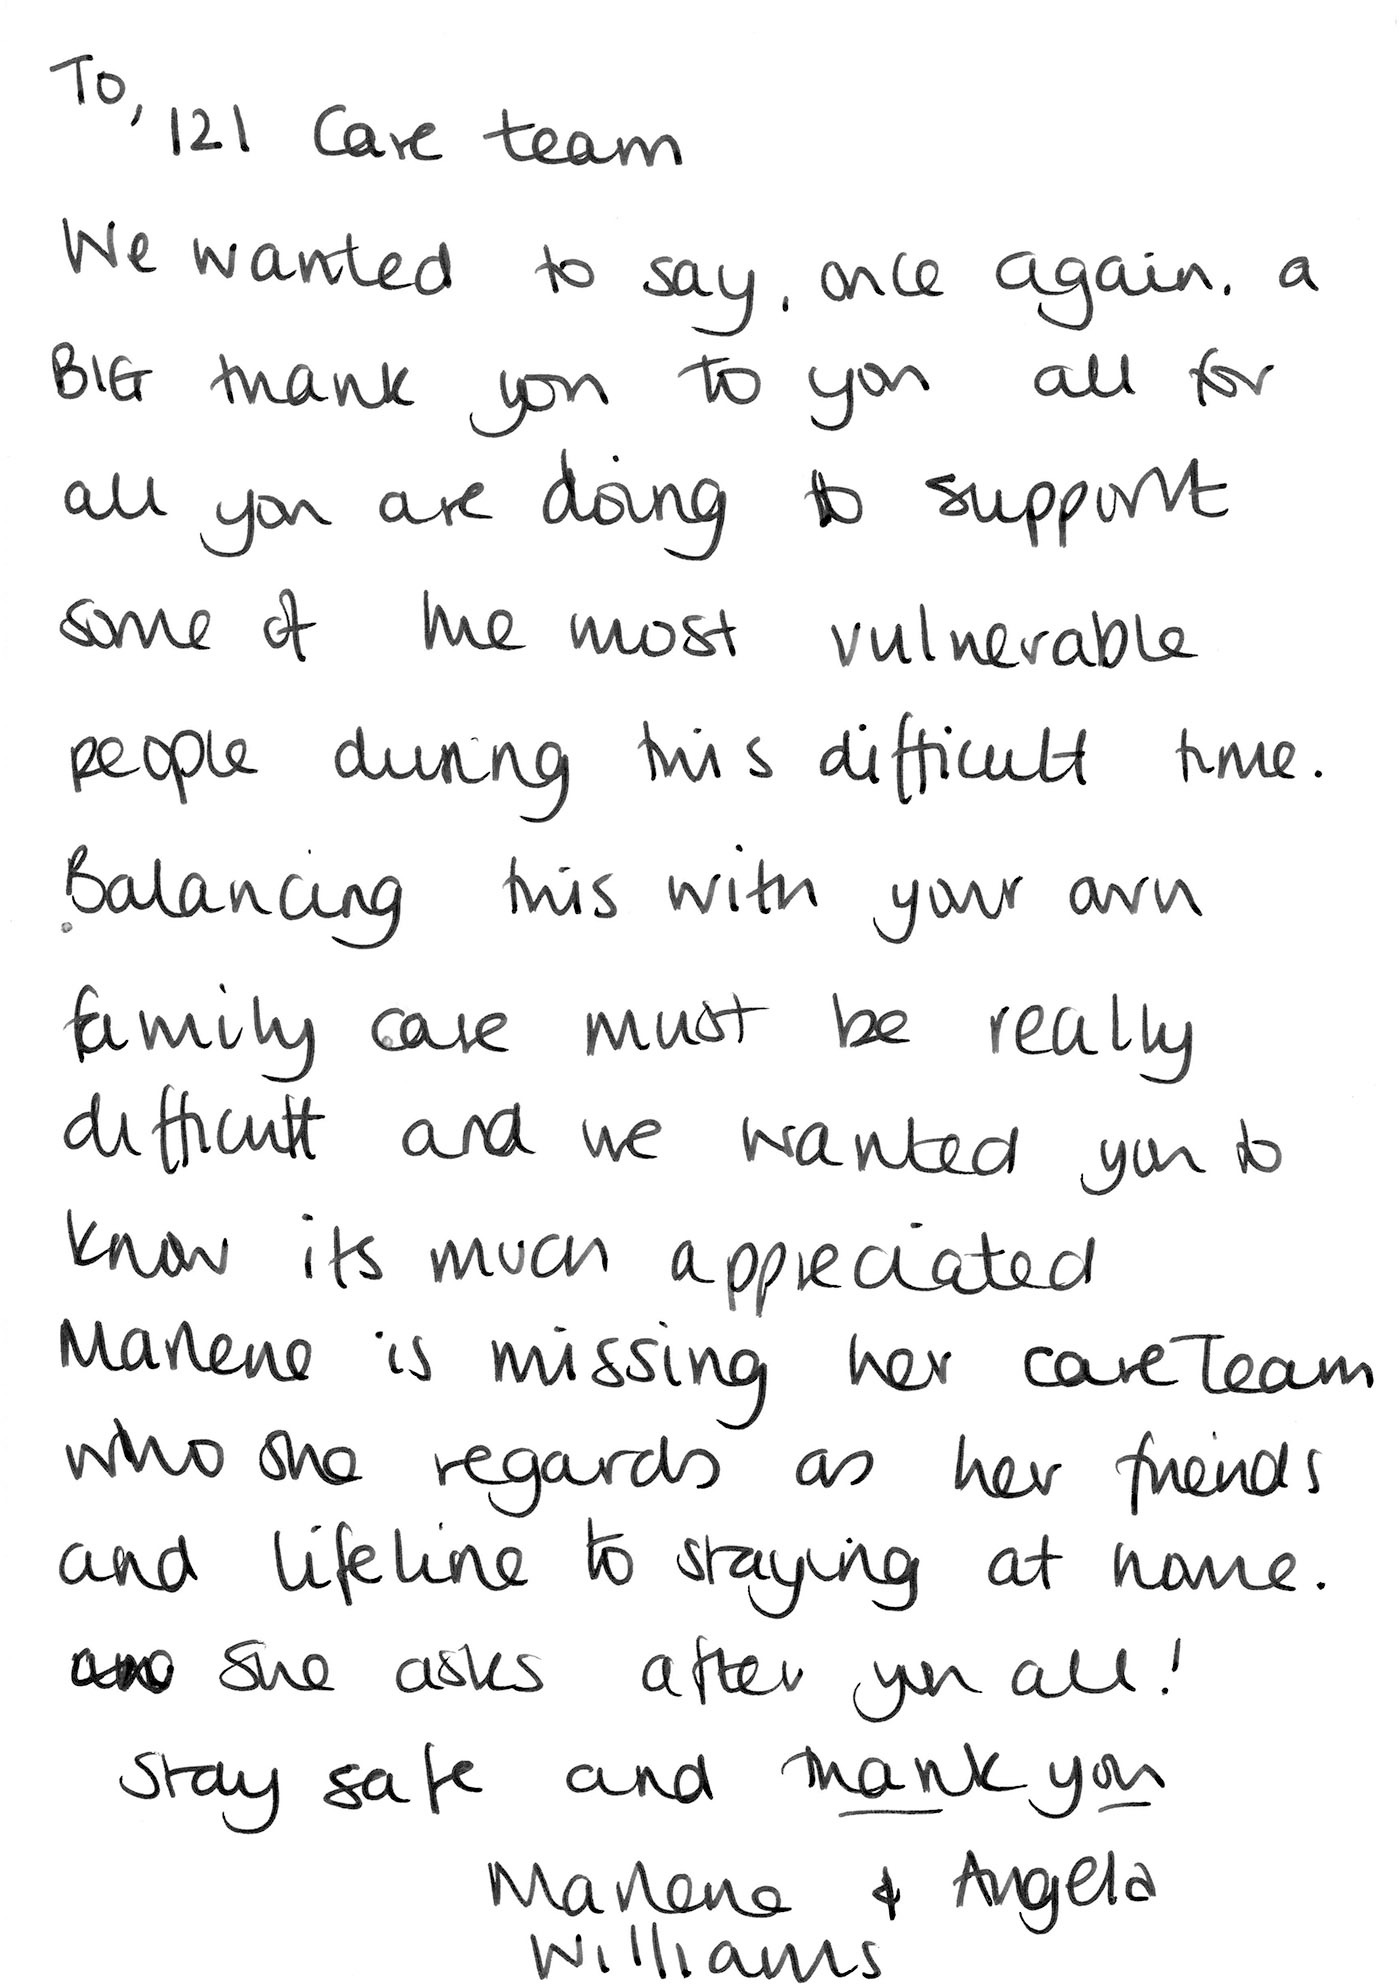 To,
121 Care team
We wanted to say, once again, a
BIG thank you to you all for
all you are doing to support
some of the most vulnerable
people during this difficult time.
Balancing this with your own
family care must be really
difficult and we wanted you to
know its much appreciated
Marlene is missing her care Team
who she regards as her friends
and lifeline to staying at home.
She asks after you all!
Stay safe and thank you
Marlene & Angela
Williams